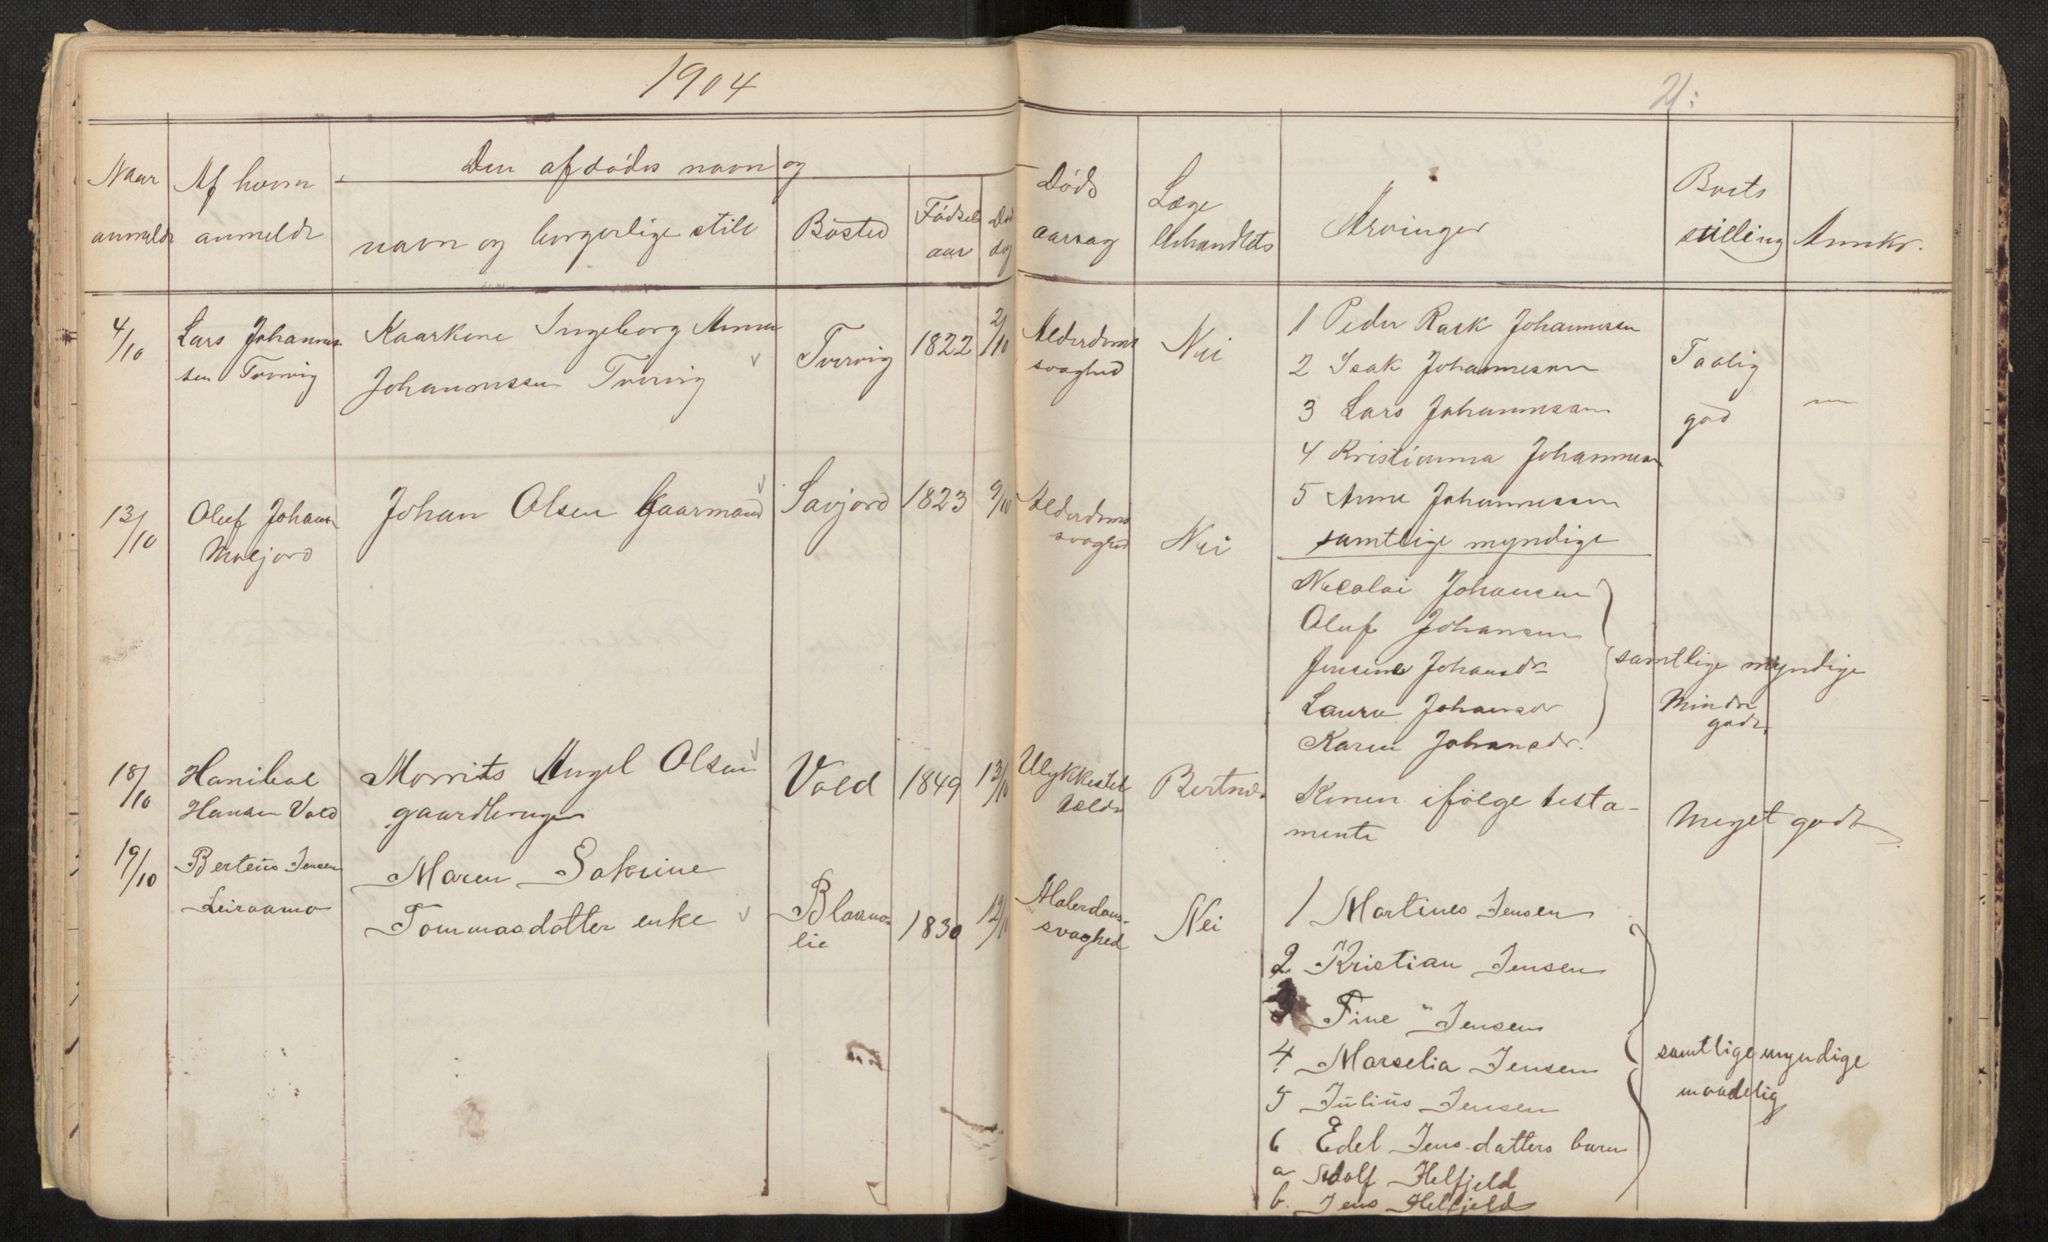 1904
21:
Naar anmeldt
Af hvem anmeldt
Den afdødes navn og
navn og borgerlige still
Bosted
Fødsel aar
Død dag
Døds aarsag
Læge behandlets
Arvinger
Boets stilling
Anmkr.
4/10
Lars Johannes
sen Tvervig
Kaarkone Ingeborg Anna
Johannessen Tvervig
Tvervig
1822
2/10
Alderdoms
svaghed
Nei
1 Peder Rask Johannessen
2 Isak Johannesen
3 Lars Johannessen
4 Kristianna Johannesen
5 Anne Johannessen
samtlige myndige
Taalig
god
13/10
Oluf Johan
Maljord
Johan Olsen Kaarmand
Savjord
1823
9/10
Alderdoms
svaghed
Nei
Nicolai Johansen
Oluf Johansen
Jensine Johansdr
Laura Johansdr
Karen Johansdr.
samtlige myndige
Mindre
godt
18/10
Hanibal
Hansen Vold
Morrits Angel Olsen
gaardbruger
Vold
1849
13/10
Ulykkestil
fælde
Bertnes
Konen ifølge testa-
mente
Meget godt
19/10
Berteus Jensen
Leiraamo
Maren Sakrine
Tommasdatter enke
Blaamo-
lie
1830
12/10
Alderdoms-
svaghed
Nei
1 Martines Jensen
2 Kristian Jensen
3 Fine Jensen
4 Marselia Jensen
5 Julius Jensen
6 Edel Jens datters barn
a Adolf Helfjeld
b. Jens Helfjeld
samtlige myndige
maadelig